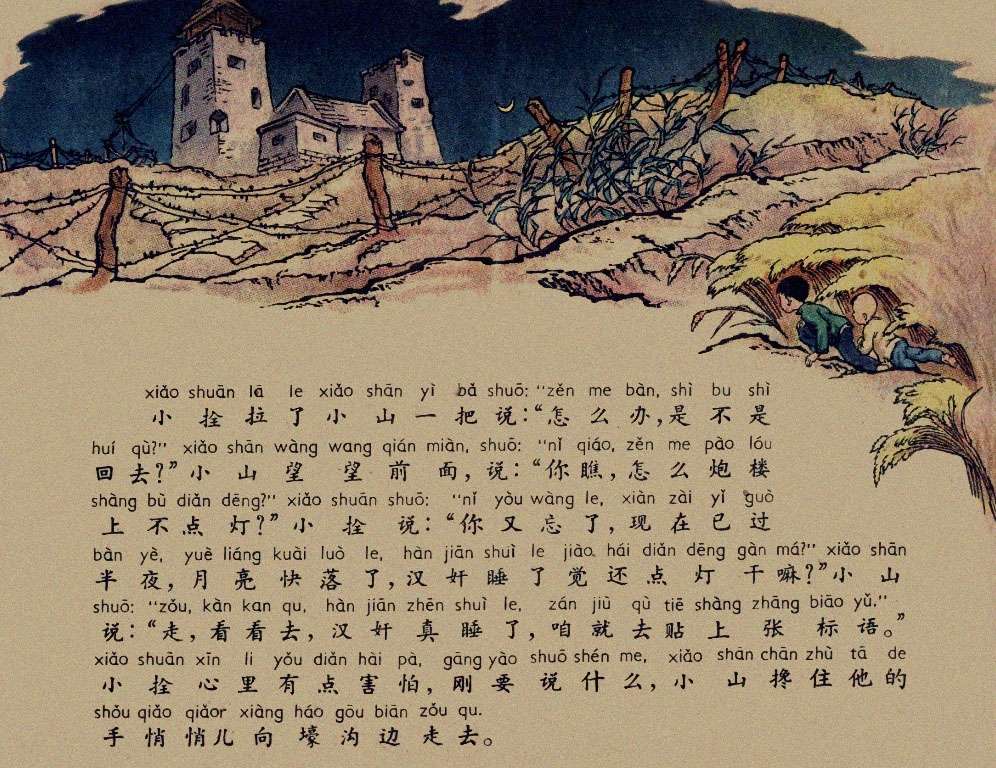 xiǎo shuān lā le xiǎo shān yì bǎ shuō: "zěn me bàn, shì bu shì
小拴拉了小山一把说:“怎么办,是不是
huí qù?" xiǎo shān wàng wang qián miàn, shuō: "nǐ qiáo, zěn me pào lóu
回去?”小山望望前面,说:“你瞧,怎么炮楼
shàng bù diǎn dēng?" xiǎo shuān shuō: "nǐ yòu wàng le, xiàn zài yǐ guò
上不点灯?”小拴说:“你又忘了,现在已过
bàn yè, yuè liáng kuài luò le, hàn jiān shuì le jiào hái diǎn dēng gàn má?" xiǎo shān
半夜,月亮快落了,汉奸睡了觉还点灯干嘛?”小山
shuō: "zǒu, kàn kan qu, hàn jiān zhēn shuì le, zán jiù qù tiē shàng zhāng biāo yǔ."
说:“走,看看去,汉奸真睡了,咱就去贴上张标语。”
xiǎo shuān xīn li yǒu diǎn hài pà, gāng yào shuō shén me, xiǎo shān chān zhù tā de
小拴心里有点害怕,刚要说什么,小山搀住他的
shǒu qiǎo qiǎor xiàng háo gōu biān zǒu qu.
手悄悄儿向壕沟边走去。